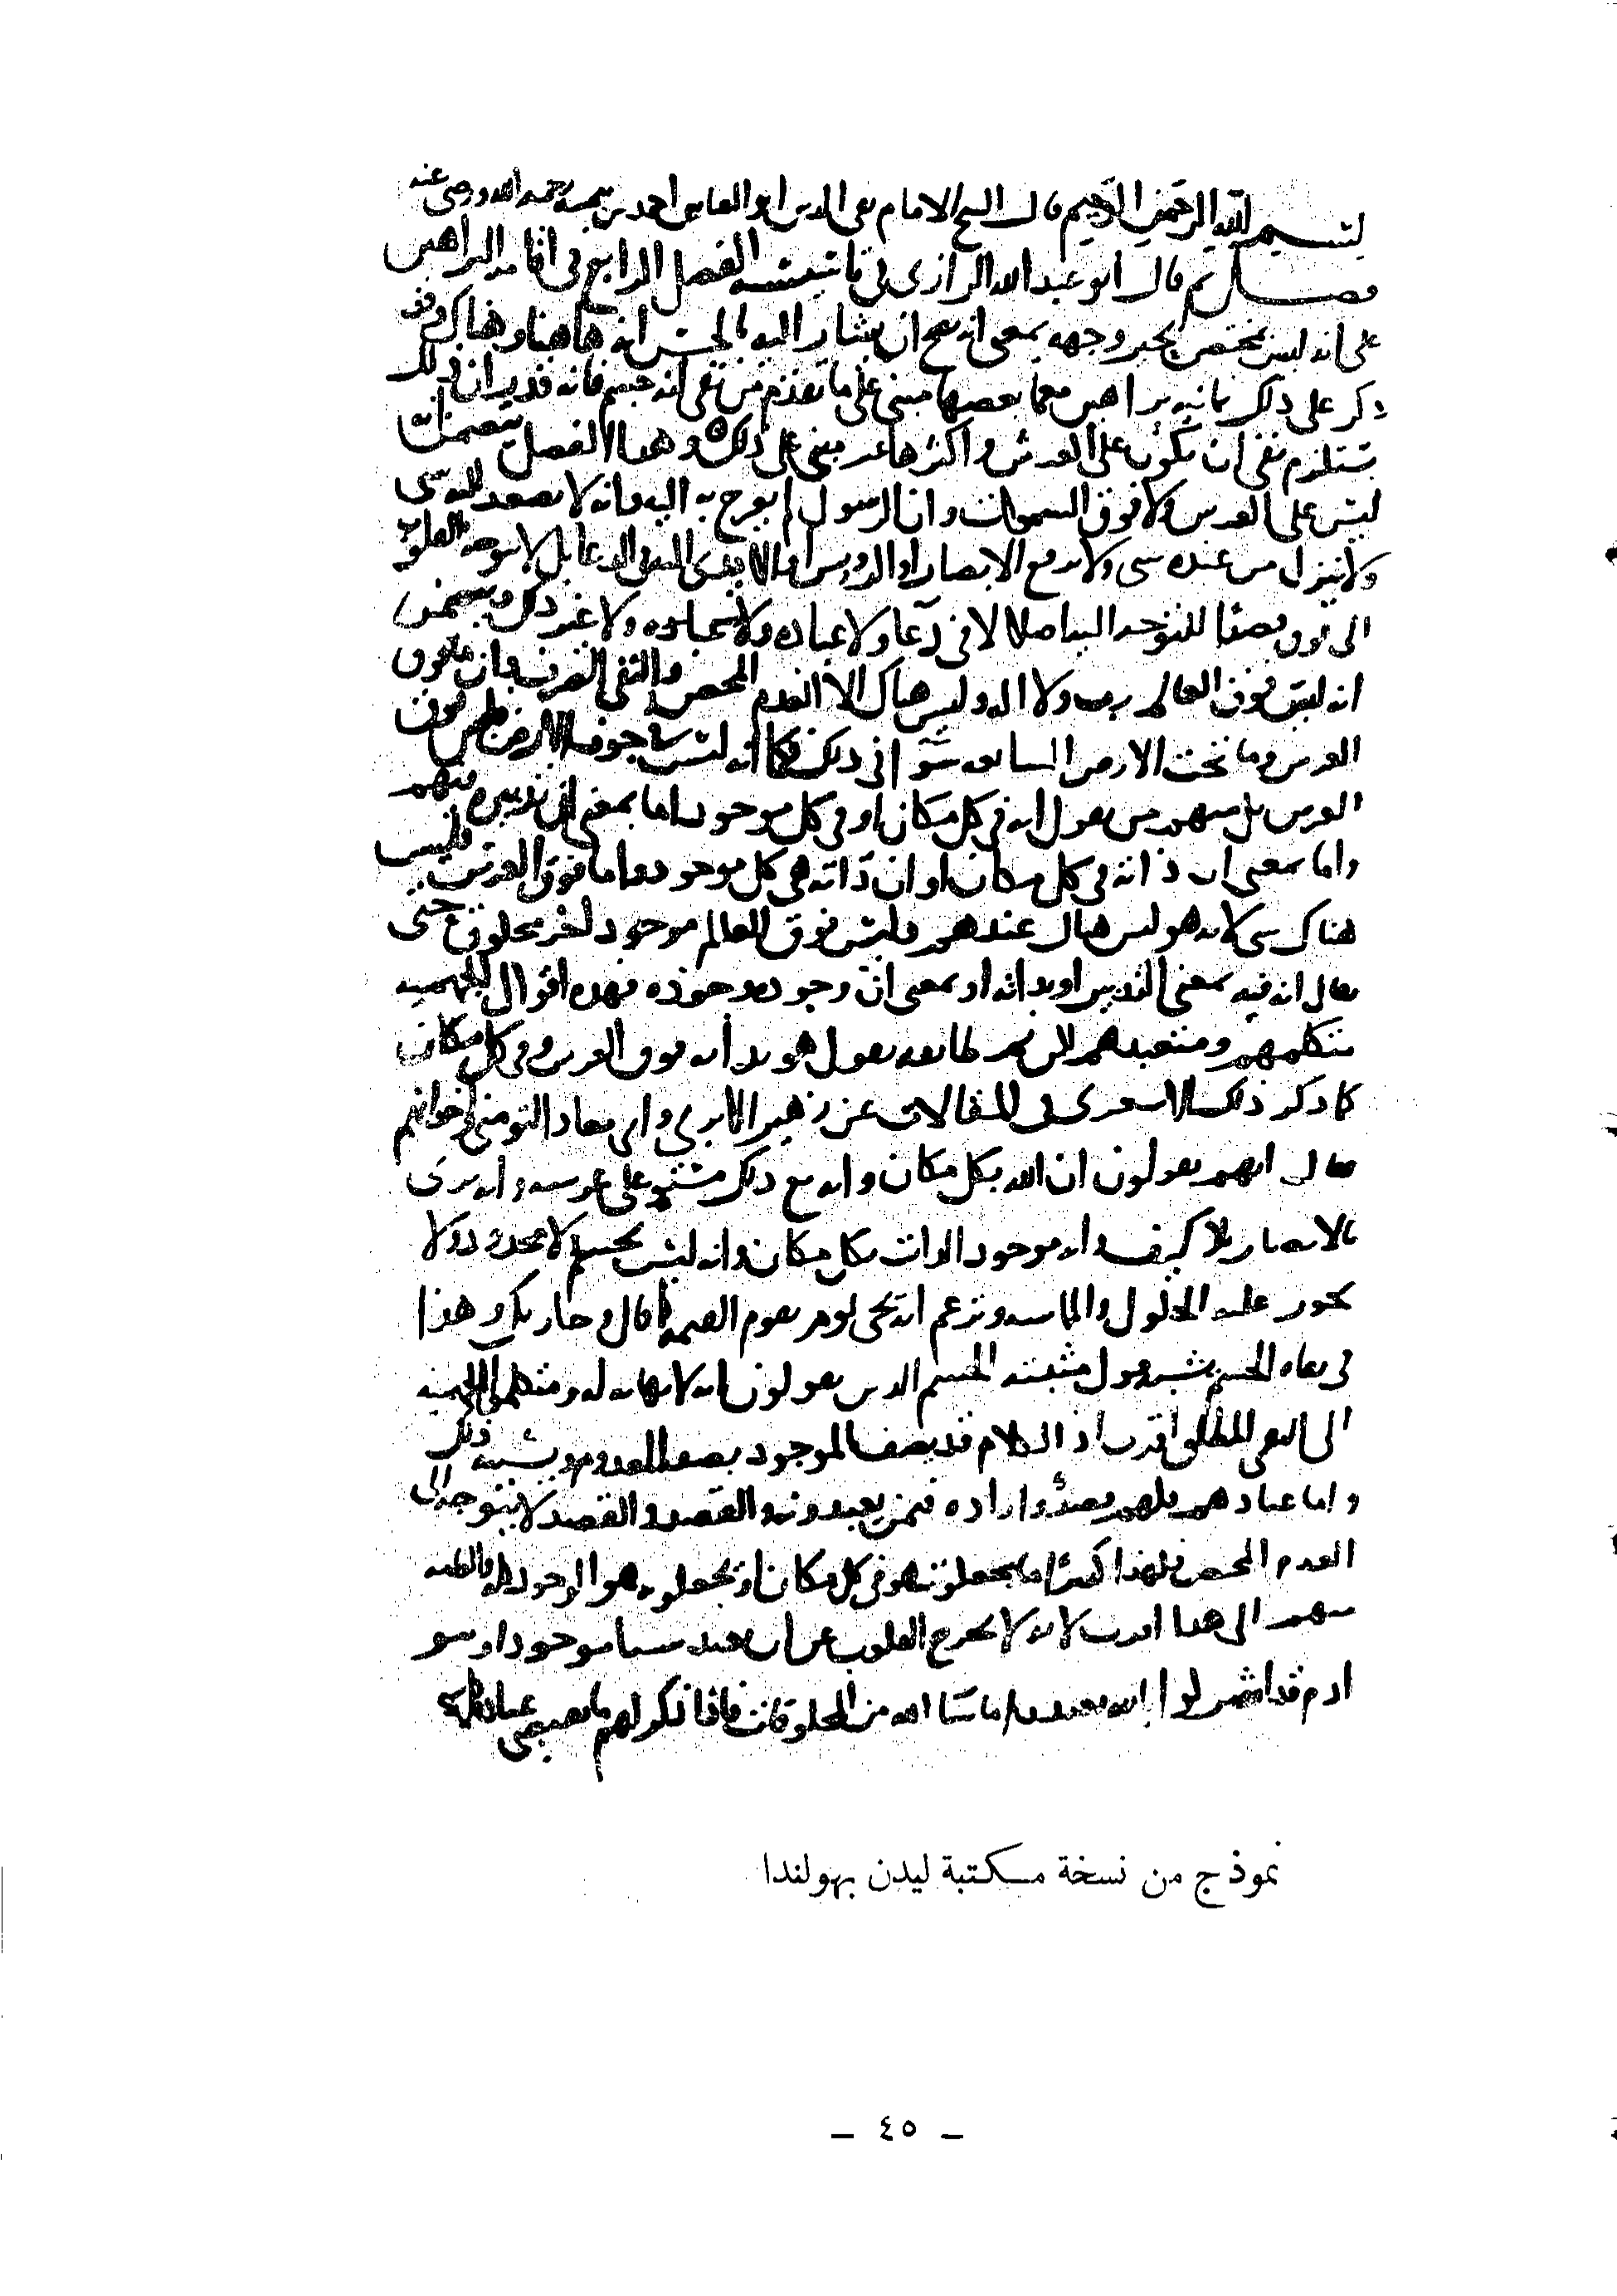 بسم الله الرحمن الرحيم قال الشيخ الامام تقي الدين ابو العباس احمد بن تيميه رحمه الله ورضى عنه
فصل ثم قال ابو عبد الله الرازى فى تاسيسه الفصل الرابع فى اقامه البراهين
على انه ليس بمختص بحيز وجهه بمعنى انه يصح ان يشار اليه بالحس انه هاهنا وهناك وقد
ذكر على ذلك ثمانيه براهين معما بعضها مبنى على ما تقدم من نفى انه جسم فانه قد بين ان ذلك
يستلزم نفى ان يكون على العرش واكثرها غير مبنى على ذلك وهذا الفصل يتضمن انه
ليس على العرش ولا فوق السموات وان الرسول لم يعرج به اليه وانه لا يصعد اليه شى
ولا ينزل من عنده شى ولا ترفع الابصار او الروس او الايدى اليه فى الدعا بل لا تتوجه القلوب
الى فوق قصدا للتوجه اليه اصلا لا فى دعا ولا عباده ولا غير ذلك ويتضمن
انه ليس فوق العالم رب ولا اله وليس هناك الا العدم المحض والنفى الصرف وان ما فوق
العرش وما تحت الارض السابعه سوا فى ذلك فكما انه ليس فى جوف الارض فليس فوق
العرش بل منهم من يقول انه فى كل مكان او فى كل موجود اما بمعنى ان تدبيره فيهم
واما بمعنى ان ذاته فى كل مكان او ان ذاته هى كل موجود واما فوق العرش فليس
هناك شى لانه هو ليس هناك عندهم وليس فوق العالم موجود اخر مخلوق حتى
يقال انه فيه بمعنى التدبير او بذاته او بمعنى ان وجوده وجوده فهذه اقوال الجهميه
متكلمهم ومتعبدهم لكن طايفه يقول هو بذاته فوق العرش وفى كل مكان
كما ذكر ذلك الاشعرى فى المقالات عن زهير الاثرى وابى معاذ التومنى
فقال انهم يقولون ان الله بكل مكان وانه مع ذلك مستو على عرشه وانه يرى
بالابصار بلا كيف وانه موجود الذات بكل مكان وانه ليس بجسم ولا محدود ولا
يجوز عليه الحلول والمماسه ويزعم انه يجى يوم القيمه كما قال وجا ربك وهذا
فى نفاه الجسم يشبه قول مثبته الجسم الذين يقولون انه لا نهايه له ومتكلموا الجهميه
الى النفى المطلق اقرب اذ الكلام قد يصف الموجود بصفه المعدوم ذلك
واما عبادهم فلهم قصد واراده فيمن يعبدونه والقصد لا يتوجه الى
العدم المحض فلهذا كثيرا ما يجعلونه فى كل مكان او يجعلونه هو الوجود
منهم الى هذا اقرب لانه لا يخرج القلوب عن ان تعبد شيا موجودا
ما شا الله من المخلوقات
نموذج من نسخة مكتبة ليدن بهولندا
– ٤٥ –